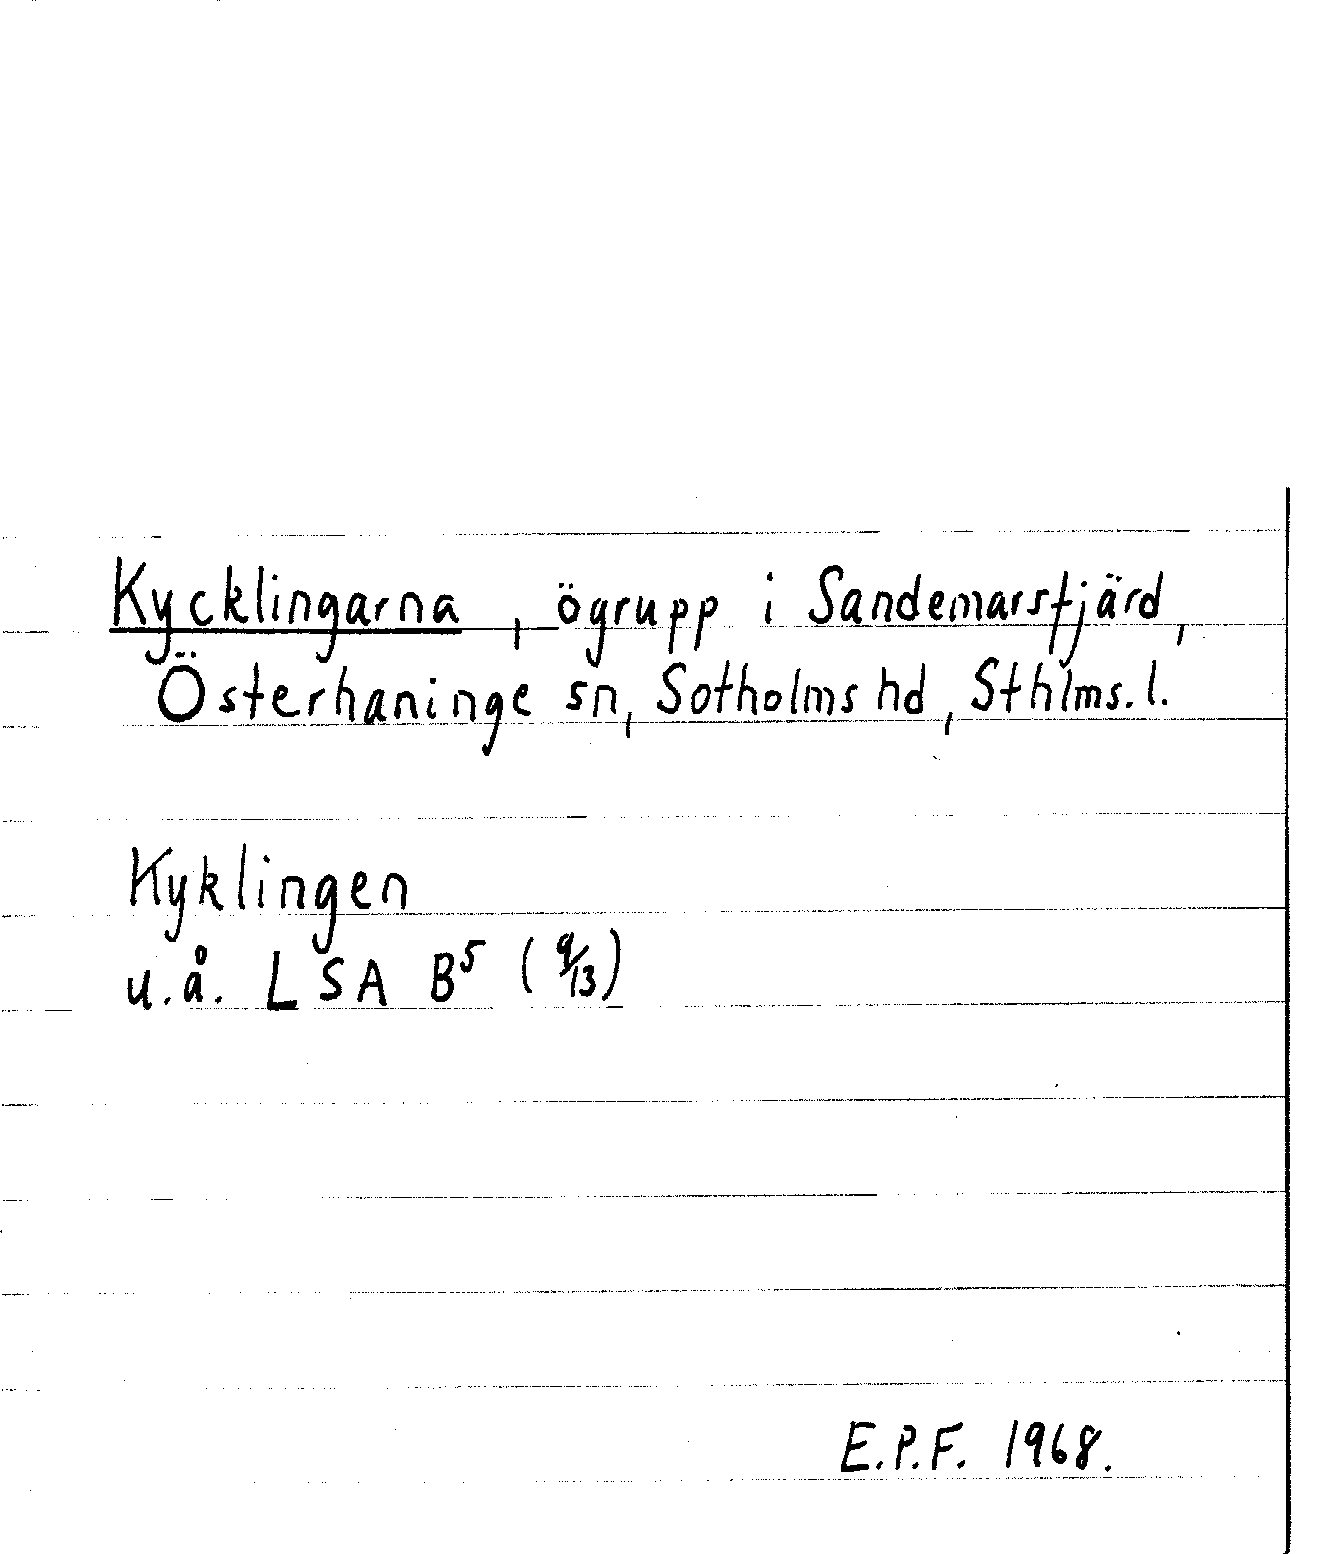 Kycklingarna, ögrupp i Sandemarsfjärd,
Österhaninge sn, Sotholms hd, Sthlms. l.
Kyklingen
u.å. LSA B⁵ (9/13)
E.P.F. 1968.